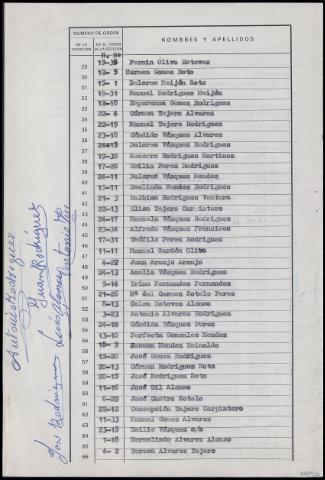 NUMERO DE ORDEN
NOMBRES Y APELLIDOS
EN LA VOTACION
EN EL CENSO DE LA SECCION
29 15-36 Fermin Oliva Estevez
30 12- 5 Carmen Gomez Soto
31 15- 1 Dolores Meijón Soto
32 15-31 Manuel Rodriguez Meijón
33 12-10 Esperanza Gomez Rodriguez
34 22- 4 Cármen Tejero Alvarez
35 22-19 Manuel Tejero Rodriguez
36 23-10 Cándido Vázquez Alvarez
37 Dolores Vázquez Rodriguez
38 19-30 Socorro Rodriguez Martinez
39 17-20 Emilia Perez Rodriguez
40 24-11 Dolores Vázquez Mendez
41 Deolinda Mendez Rodriguez
42 21- 3 Balbina Rodriguez Ventura
43 Elisa Tejero Carpintero
44 24-17 Manuela Vázquez Rodriguez
45 23-34 Alfredo Vázquez Francisco
46 17-31 Teófilo Perez Rodriguez
47 11-11 Manuel Garrido Oliva
48 4-27 Juan Araujo Araujo
49 24-13 Amelia Vázquez Rodriguez
50 9-14 Trino Fernandez Fernandez
51 21-25 Mª del Carmen Sotelo Perez
52 Celsa Estevez Alonso
53 3-23 Antonio Alvarez Rodriguez
54 24-10 Cándida Vázquez Perez
55 13-10 Perfecta Gonzalez Mendez
56 Mendez Reinaldo
57 12-20 José Gomez Rodriguez
58 20-13 Cármen Rodriguez Soto
59 20-15 José Rodriguez Soto
60 11-16 José Gil Alonso
61 6-29 José Castro Sotelo
62 22-12 Concepción Tejero Carpintero
63 11-33 Manuel Gomez Alvarez
64 23-19 Emilio Vázquez s/s
65 1-18 Hermelindo Alvarez Alonso
66 4- 2 Teresa Alvarez Tejero
Antonio Rodriguez
Juan Rodríguez
José Rodríguez
AHPOu